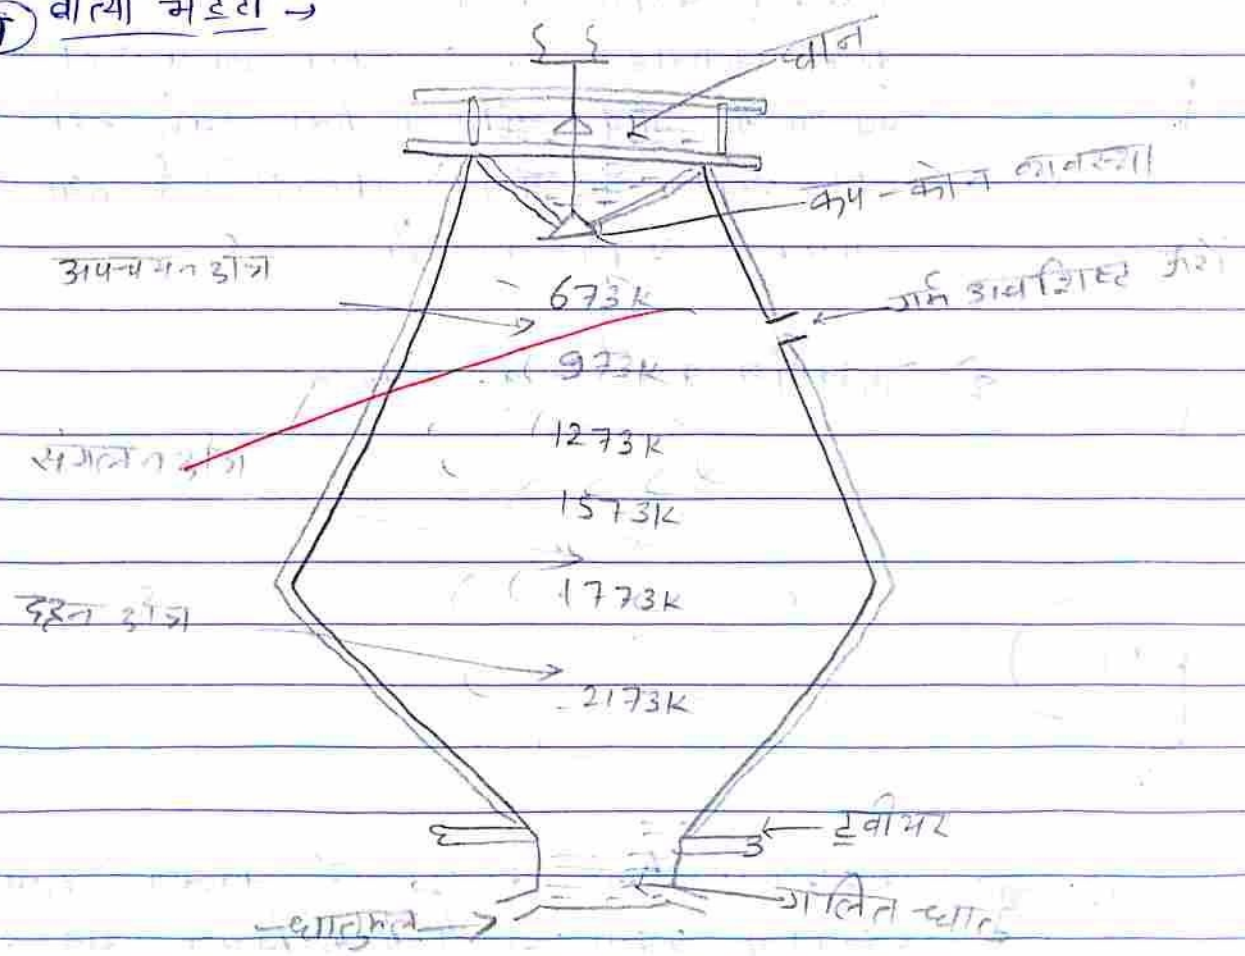 वात्या भट्टी →
घान
कप-कोन व्यवस्था
अपचयन क्षेत्र
673K
गर्म अवशिष्ट
973K
1273K
संगलन क्षेत्र
1573K
1773K
दहन क्षेत्र
2173K
टवीयर
गलित धातु
धातुमल